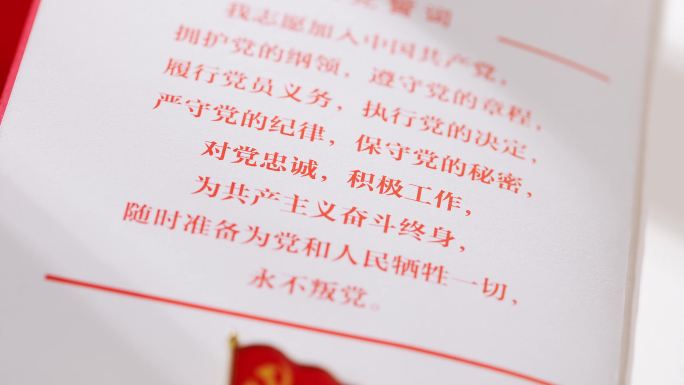 党誓词
我志愿加入中国共产党，
拥护党的纲领，遵守党的章程，
履行党员义务，执行党的决定，
严守党的纪律，保守党的秘密，
对党忠诚，积极工作，
为共产主义奋斗终身，
随时准备为党和人民牺牲一切，
永不叛党。